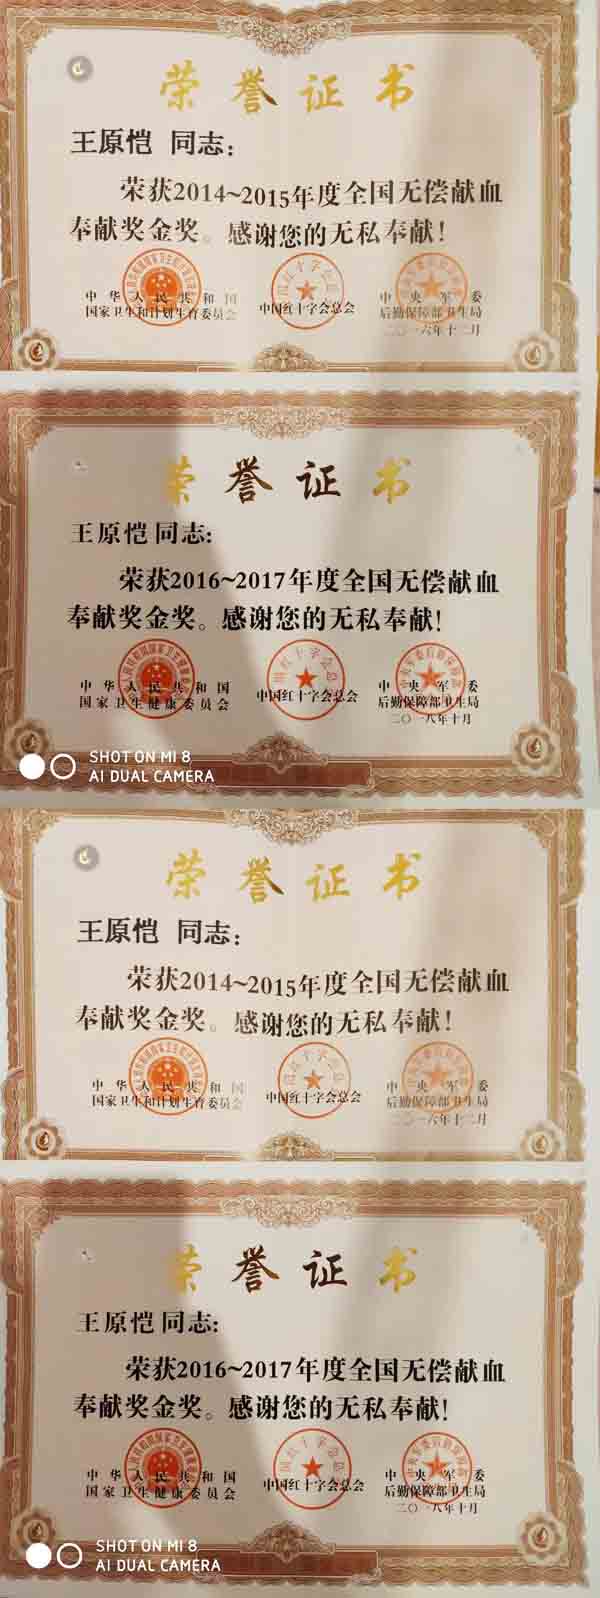 荣誉证书
王原恺 同志：
荣获2014~2015年度全国无偿献血
奉献奖金奖。感谢您的无私奉献！
中华人民共和国
国家卫生和计划生育委员会
中国红十字会总会
中央军委
后勤保障部卫生局
二〇一六年十二月
荣誉证书
王原恺同志：
荣获2016~2017年度全国无偿献血
奉献奖金奖。感谢您的无私奉献！
中华人民共和国
国家卫生健康委员会
中国红十字会总会
中央军委
后勤保障部卫生局
二〇一八年十月
SHOT ON MI 8
AI DUAL CAMERA
荣誉证书
王原恺 同志：
荣获2014~2015年度全国无偿献血
奉献奖金奖。感谢您的无私奉献！
中华人民共和国
国家卫生和计划生育委员会
中国红十字会总会
中央军委
后勤保障部卫生局
二〇一六年十二月
荣誉证书
王原恺同志：
荣获2016~2017年度全国无偿献血
奉献奖金奖。感谢您的无私奉献！
中华人民共和国
国家卫生健康委员会
中国红十字会总会
中央军委
后勤保障部卫生局
二〇一八年十月
SHOT ON MI 8
AI DUAL CAMERA